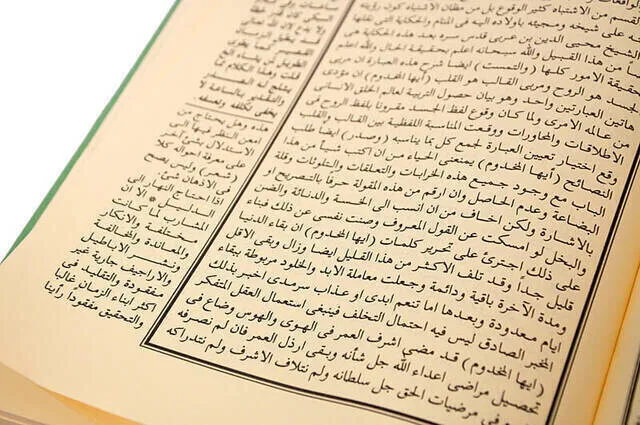 القسم من الاشتباه كثير الوقوع بل من مظان الاشتباه كون رؤية
له على شيخه ومجيئه باولاده اليه فى المنام والحكاية التى نقلها
الشيخ محيى الدين بن عربى قدس سره بعد هذه الحكاية هى
من هذا القبيل والله سبحانه اعلم بحقيقة الحال والله اعلم
حقيقة الامور كلها (والتمست) ايضا شرح هذه العبارة ان مربى
الجسد هو الروح ومربى القالب هو القلب (أيها المخدوم) ان مؤدى
هاتين العبارتين واحد وهو بيان حصول التربية لعالم الخلق الانسانى
من عالمه الامرى ولما كان وقوع لفظ الجسد مقرونا بلفظ الروح فى
الاطلاقات والمحاورات ووقعت المناسبة اللفظية بين القالب والقلب
وقع اختيار تعيين العبارة لجمع كل بما يناسبه (وصدر) ايضا طلب
النصائح (أيها المخدوم) يمنعنى الحياء من ان اكتب شيأ من هذا
الباب مع وجود جميع هذه الخرابات والتعلقات والتلوثات وقلة
البضاعة وعدم الحاصل وان ارقم من هذه المقولة حرفا بالتصريح او
بالاشارة ولكن اخاف من ان انسب الى الخسة والدنائة والضن
والبخل لو امسكت عن القول المعروف وصنت نفسى عن ذلك فبناء
على ذلك اجترئ على تحرير كلمات (ايها المخدوم) ان بقاء الدنيا
قليل جدا وقد تلف الاكثر من هذا القليل ايضا وزال وبقى الاقل
ومدة الآخرة باقية ودائمة وجعلت معاملة الابد والخلود مربوطة ببقاء
ايام معدودة وبعدها اما تنعم ابدى او عذاب سرمدى اخبر بذلك
المخبر الصادق ليس فيه احتمال التخلف فينبغى استعمال العقل المتفكر
(ايها المخدوم) قد مضى اشرف العمر فى الهوى والهوس وضاع فى
تحصيل مراضى اعداء الله جل شأنه وبقى ارذل العمر فان لم نصرفه
فى مرضيات الحق جل سلطانه ولم نتلاف الاشرف ولم نتداركه
قلت وهذا الكلام
يخفى تكلفه وتعسفه
هذه وهل يحتاج من
امعن النظر فيها الى
الاستدلال بشئ آخر
على معرفة احواله كلا
(شعر) وليس يصح
فى الاذهان شئ*
اذا احتاج النهار الى
الدليل* الا ان
المشارب لما كانت
مختلفة والانكار
والمعاندة والمخالفة
ونشر الاباطيل
والاراجيف جارية غير
مفقودة والتقليد فى
اكثر ابناء الزمان غالبا
والتحقيق مفقودا رأينا